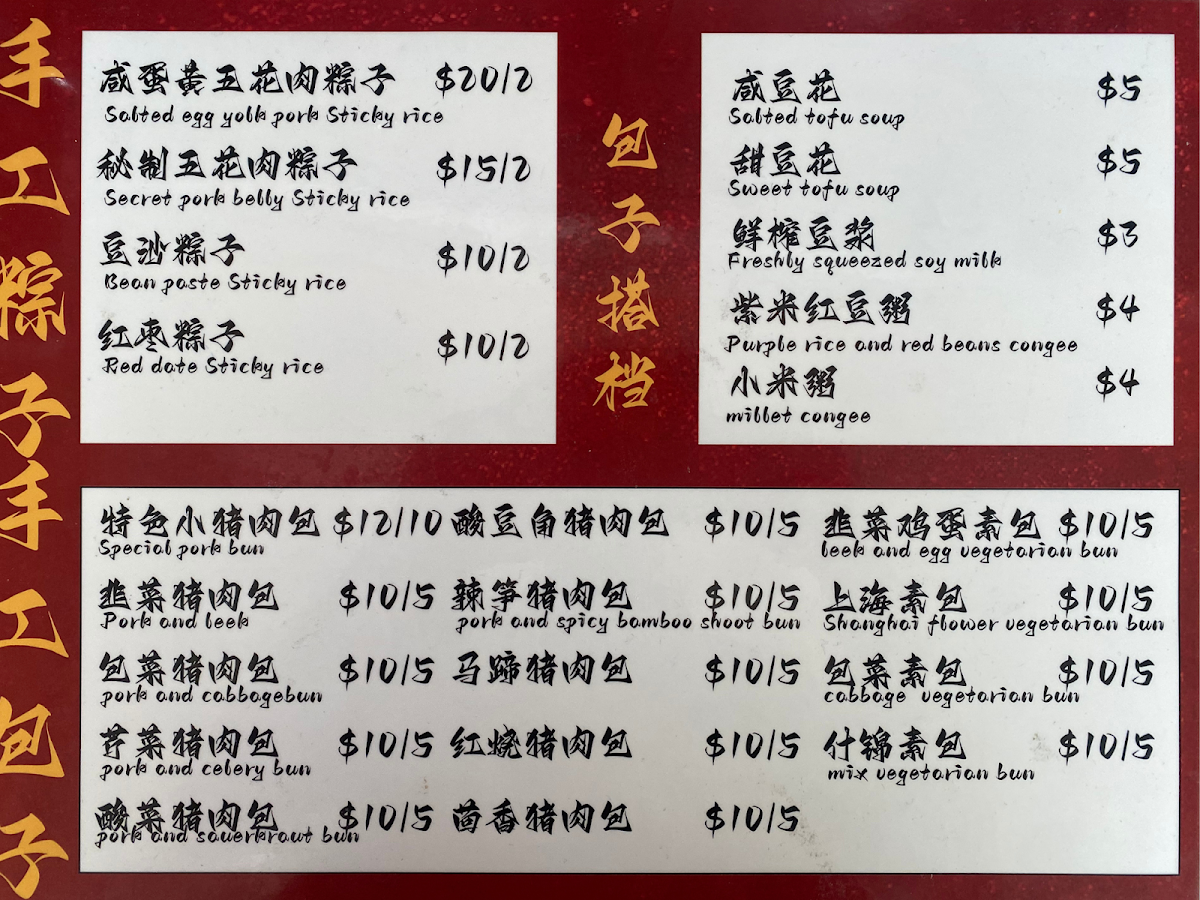 手工粽子
咸蛋黄五花肉粽子 $20/2
Salted egg yolk pork Sticky rice
秘制五花肉粽子 $15/2
Secret pork belly Sticky rice
豆沙粽子 $10/2
Bean paste Sticky rice
红枣粽子 $10/2
Red date Sticky rice
包子搭档
咸豆花 $5
Salted tofu soup
甜豆花 $5
Sweet tofu soup
鲜榨豆浆 $3
Freshly squeezed soy milk
紫米红豆粥 $4
Purple rice and red beans congee
小米粥 $4
millet congee
手工包子
特色小猪肉包 $12/10 酸豆角猪肉包 $10/5 韭菜鸡蛋素包 $10/5
Special pork bun leek and egg vegetarian bun
韭菜猪肉包 $10/5 辣笋猪肉包 $10/5 上海素包 $10/5
Pork and leek pork and spicy bamboo shoot bun Shanghai flower vegetarian bun
包菜猪肉包 $10/5 马蹄猪肉包 $10/5 包菜素包 $10/5
pork and cabbagebun cabbage vegetarian bun
芹菜猪肉包 $10/5 红烧猪肉包 $10/5 什锦素包 $10/5
pork and celery bun mix vegetarian bun
酸菜猪肉包 $10/5 茴香猪肉包 $10/5
pork and sauerkraut bun